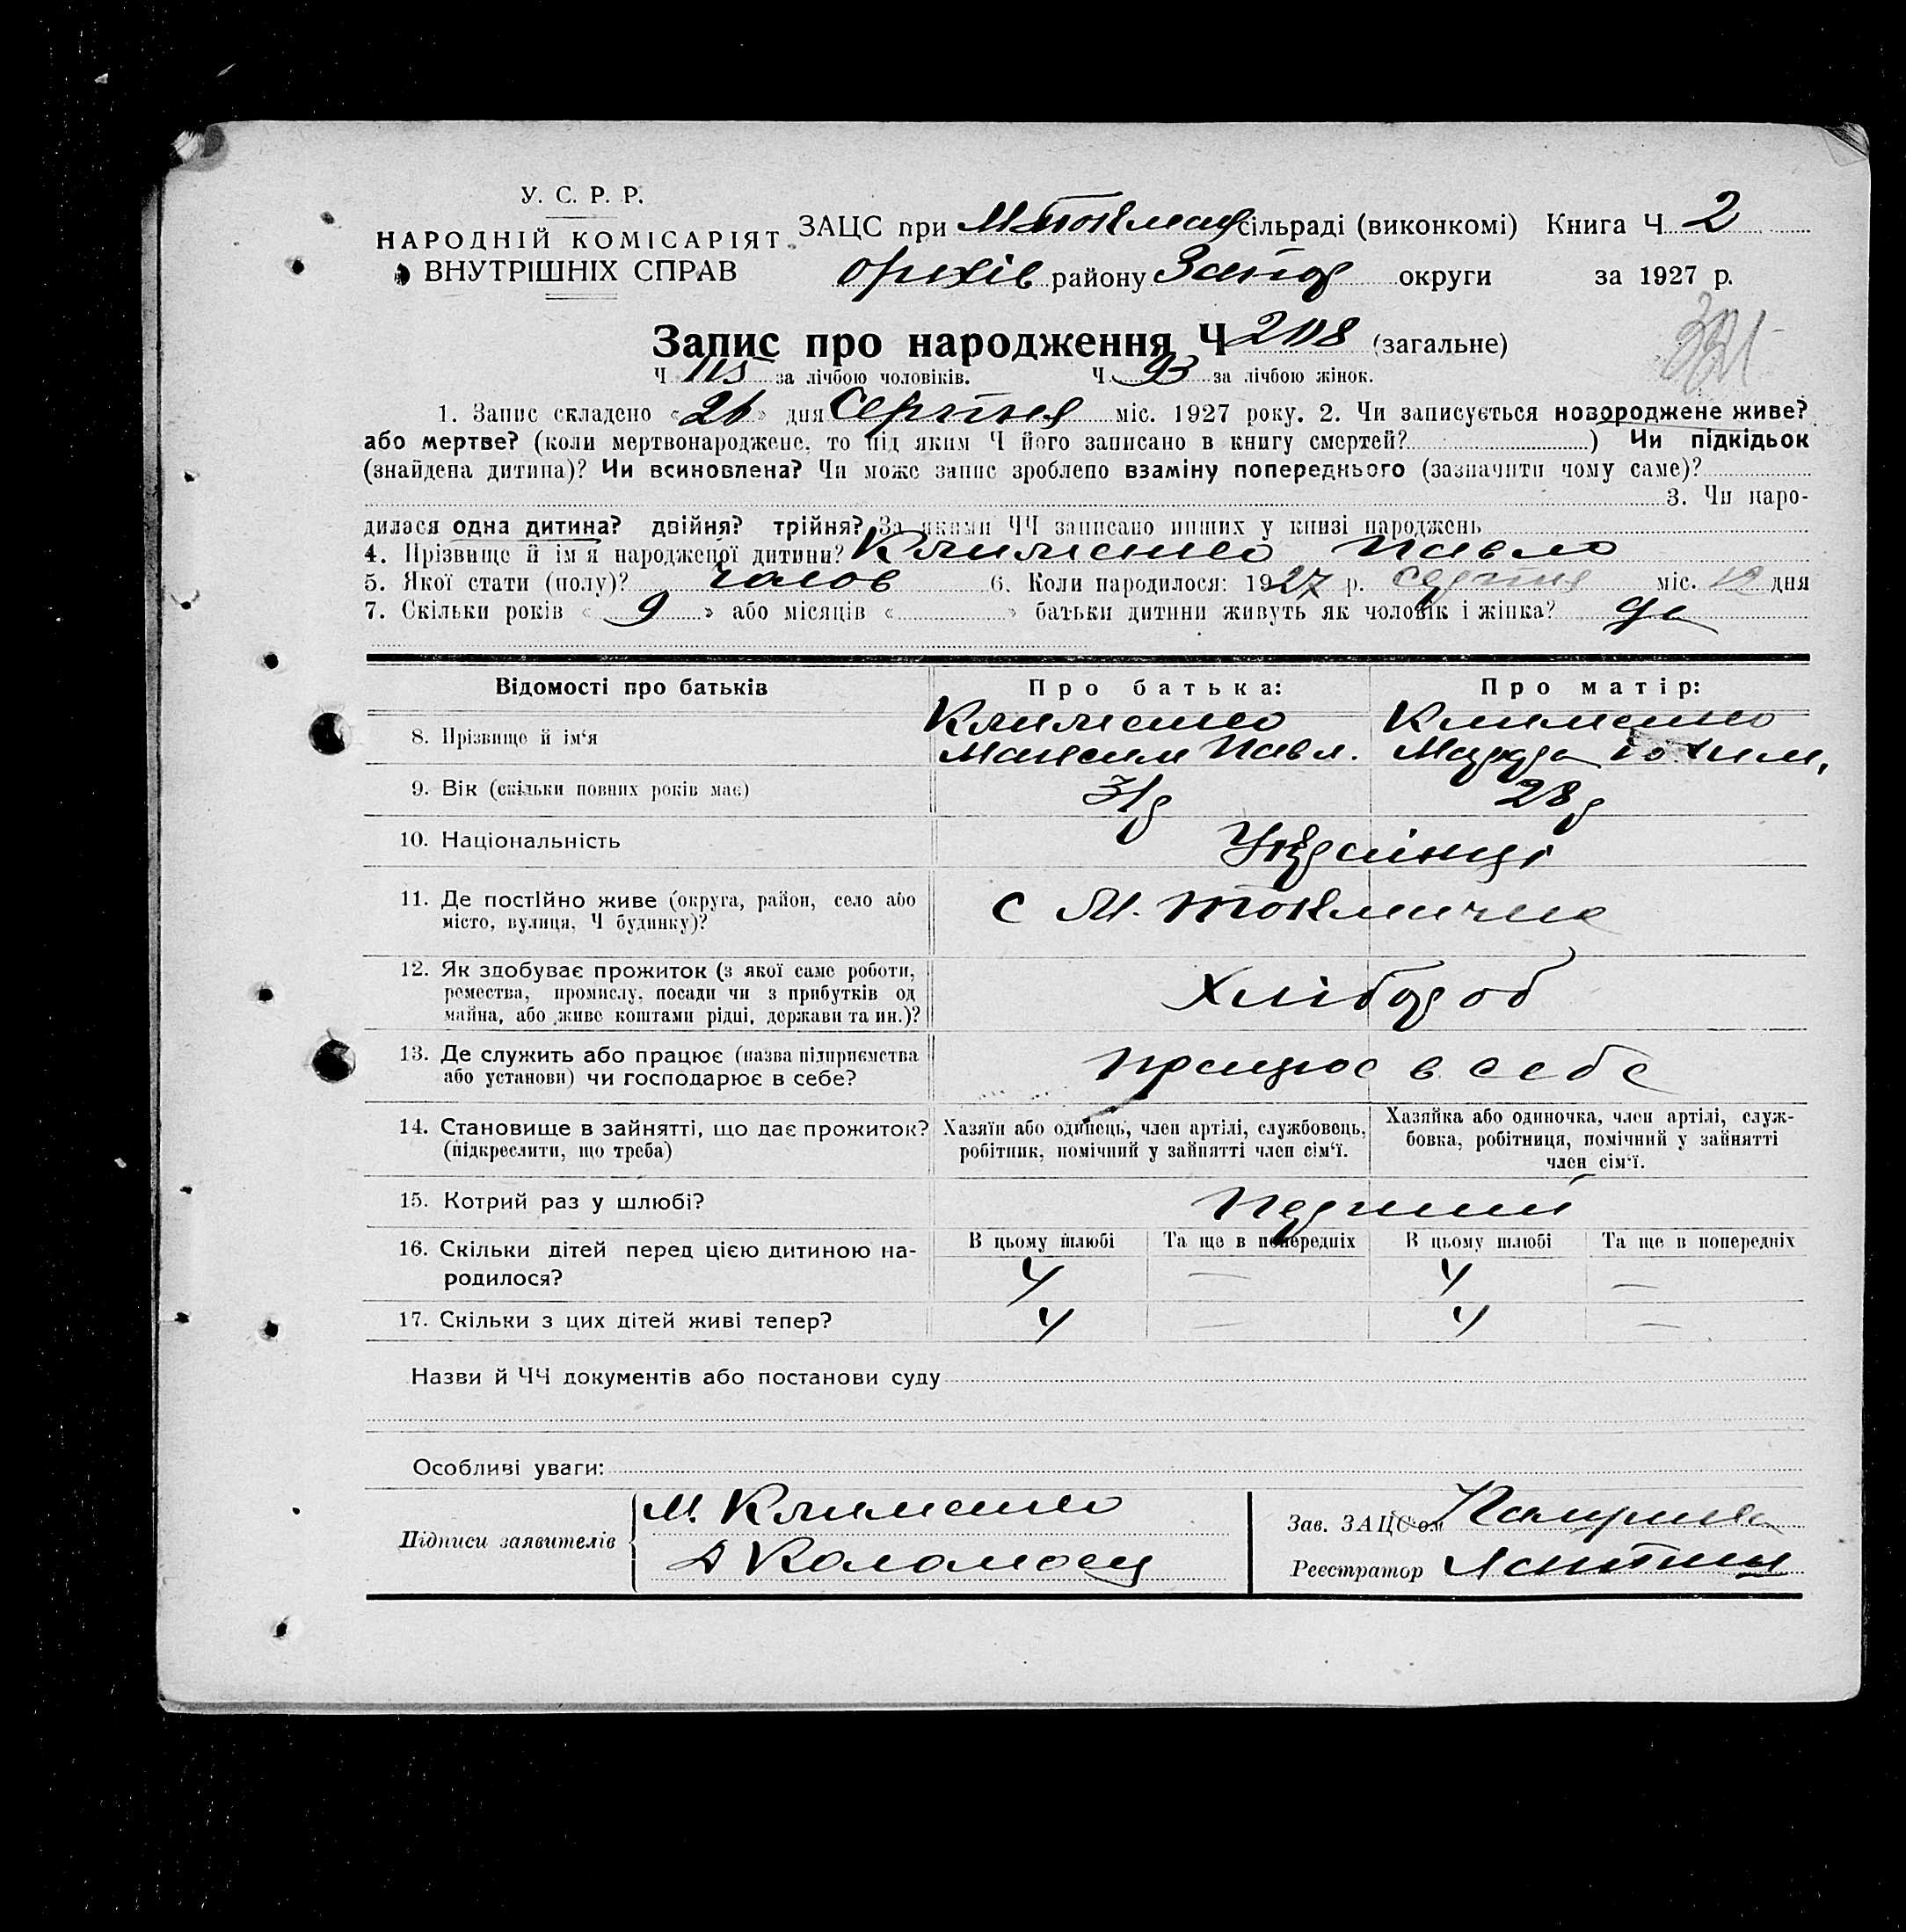 У. С. Р. Р.
НАРОДНІЙ КОМІСАРІЯТ
ВНУТРІШНІХ СПРАВ
ЗАЦС при М Токмац сільраді (виконкомі) Книга Ч 2
Оріхів району Запор округи за 1927 р.
Запис про народження Ч 208 (загальне)
Ч 115 за лічбою чоловіків. Ч 93 за лічбою жінок.
1. Запис складено «26» дня Серпня міс. 1927 року. 2. Чи записується новороджене живе?
або мертве? (коли мертвонароджене, то під яким Ч його записано в книгу смертей? ) Чи підкідьок
(знайдена дитина)? Чи всиновлена? Чи може запис зроблено взаміну попереднього (зазначити чому саме)?
3. Чи наро-
дилася одна дитина? двійня? трійня? За якими ЧЧ записано инших у книзі народжень
4. Прізвище й ім'я народженої дитини? Клименко Павло
5. Якої стати (полу)? чолов 6. Коли народилося: 1927 р. серпня міс. 12 дня
7. Скільки років «9» або місяців « » батьки дитини живуть як чоловік і жінка? да
Відомості про батьків Про батька: Про матір:
8. Прізвище й ім'я Клименко Клименко
Максим Павл.
9. Вік (скільки повних років має) 31 р 28 р
10. Національність Українці
11. Де постійно живе (округа, район, село або
місто, вулиця, Ч будинку)? с М. Токмачка
12. Як здобуває прожиток (з якої саме роботи,
ремества, промислу, посади чи з прибутків од
майна, або живе коштами рідні, держави та ин.)? Хлібороб
13. Де служить або працює (назва підприємства
або установи) чи господарює в себе? працює в себе
14. Становище в зайнятті, що дає прожиток?
(підкреслити, що треба)
Хазяїн або одинець, член артілі, службовець,
робітник, помічний у зайнятті член сім'ї.
Хазяйка або одиночка, член артілі, служ-
бовка, робітниця, помічний у зайнятті
член сім'ї.
15. Котрий раз у шлюбі? Перший
В цьому шлюбі Та ще в попередніх В цьому шлюбі Та ще в попередніх
16. Скільки дітей перед цією дитиною на-
родилося? 4 — 4 —
17. Скільки з цих дітей живі тепер? 4 — 4 —
Назви й ЧЧ документів або постанови суду
Особливі уваги:
Підписи заявителів
М. Клименко
Д Коломоец
Зав. ЗАЦС'ом
Реєстратор